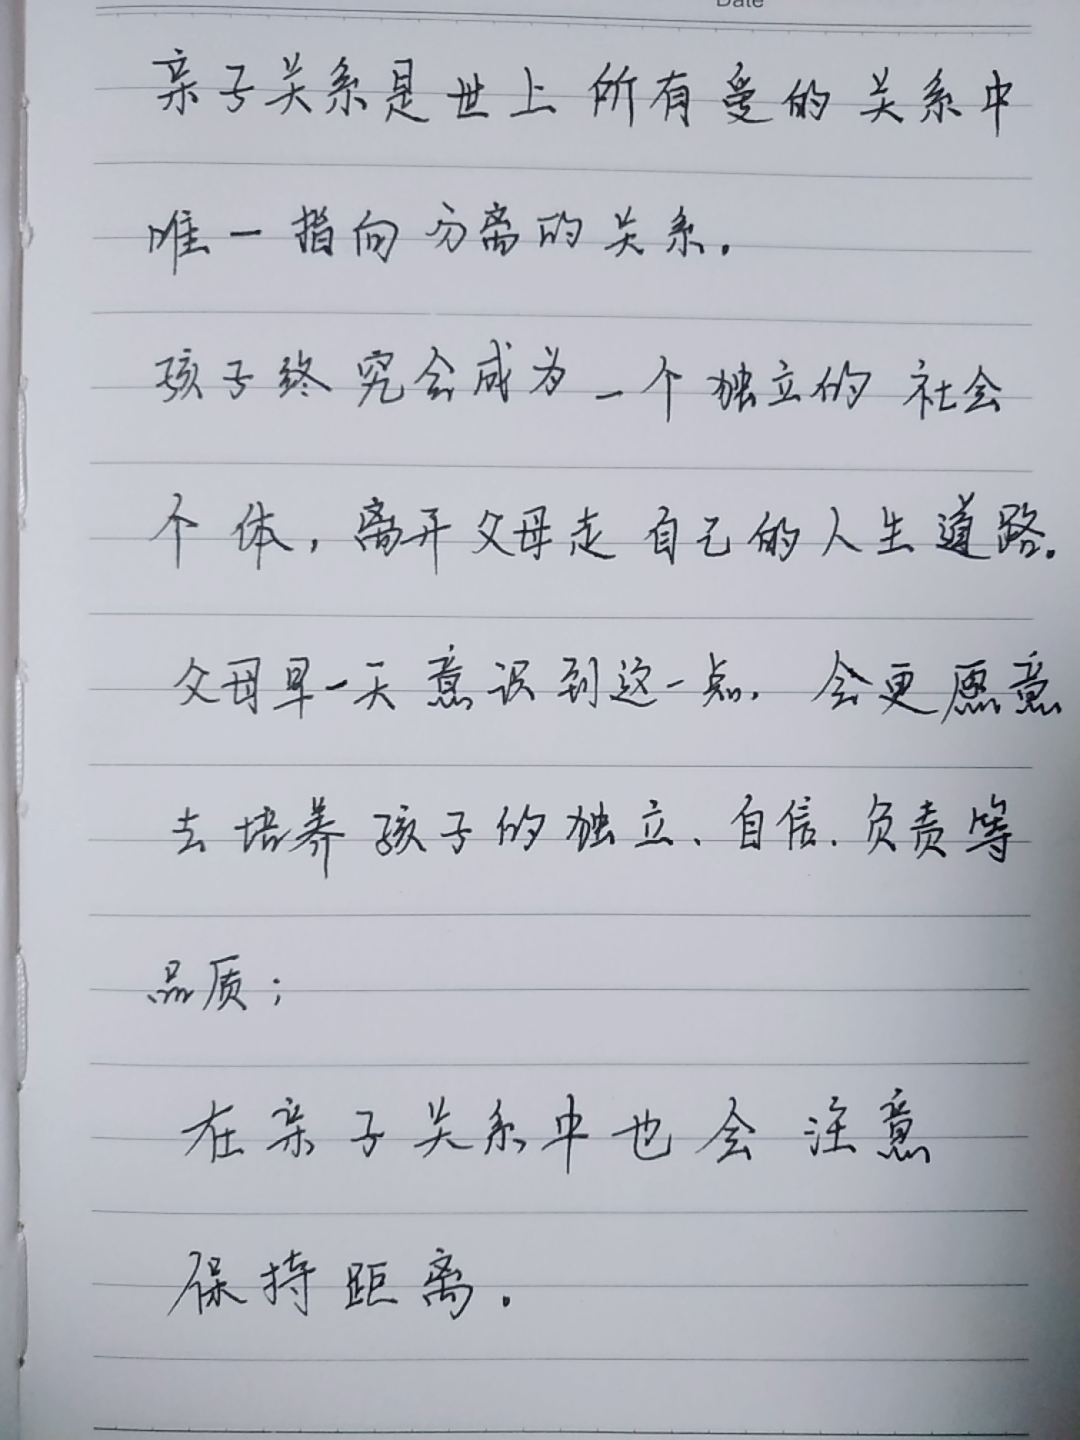 Date
亲子关系是世上所有爱的关系中
唯一指向分离的关系.
孩子终究会成为一个独立的社会
个体,离开父母走自己的人生道路.
父母早一天意识到这一点.会更愿意
去培养孩子的独立、自信、负责等
品质;
在亲子关系中也会注意
保持距离.